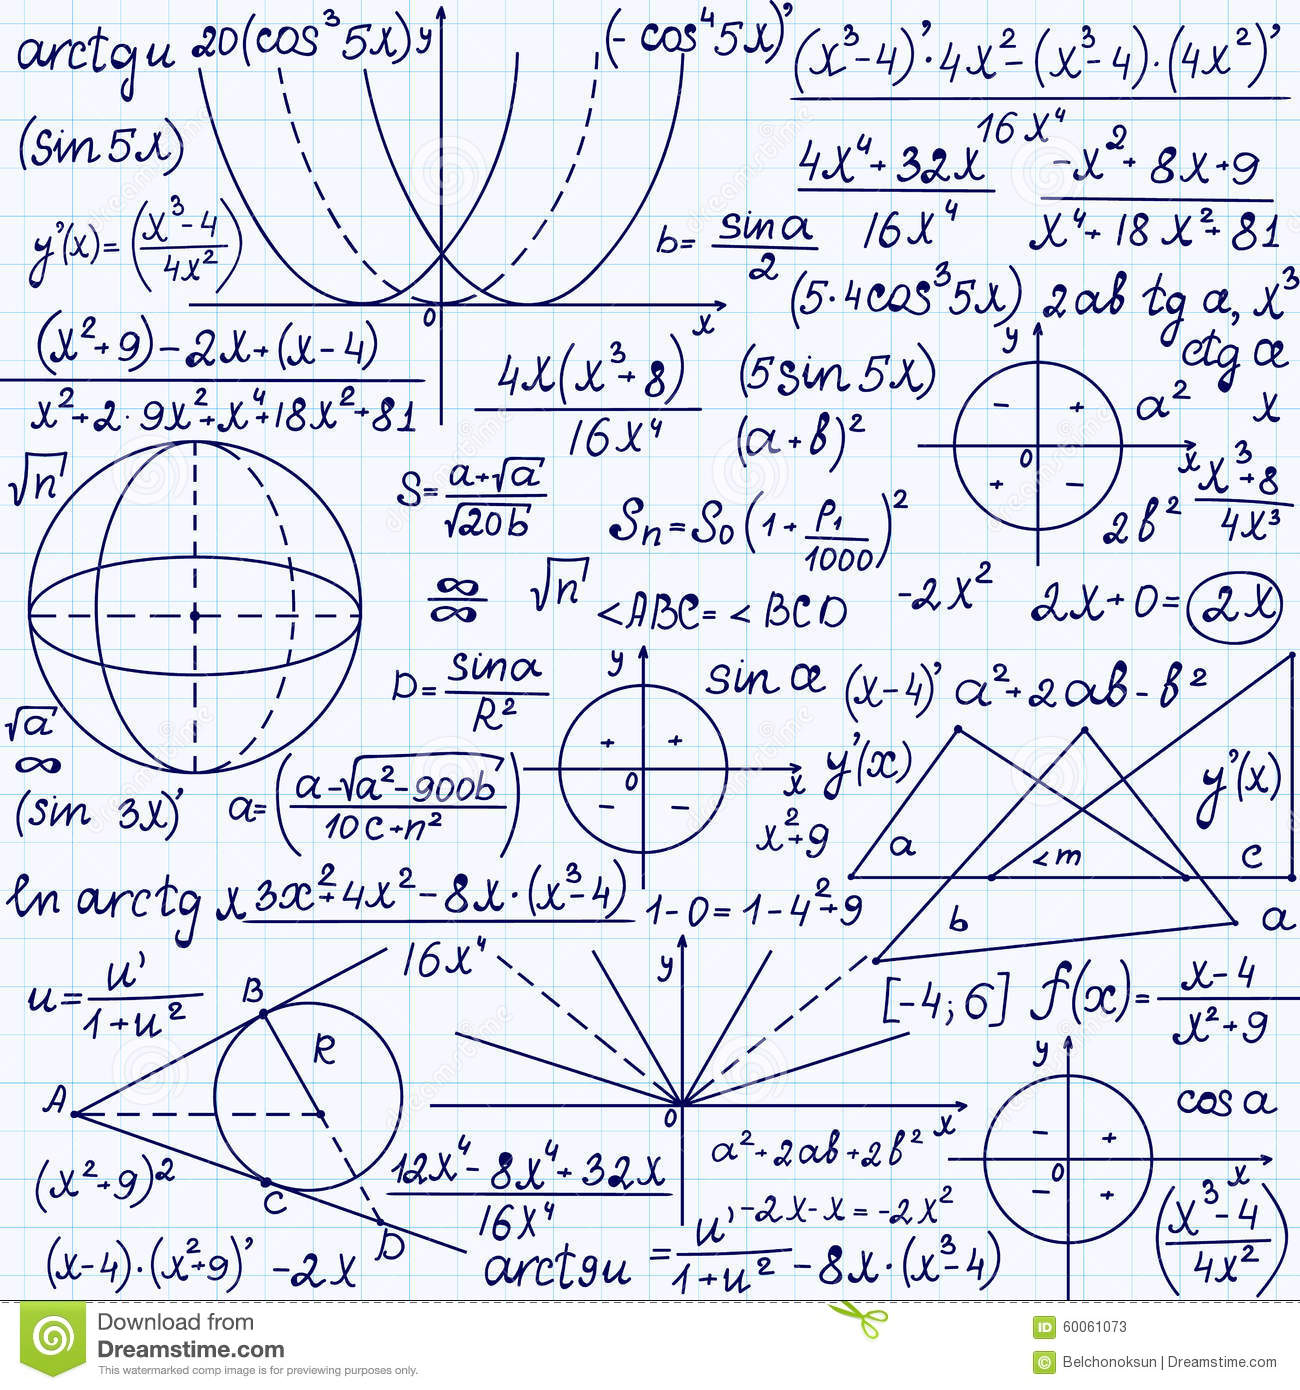 arctgu 20(cos³5x) y (-cos⁴5x)' (x³-4)'·4x²-(x³-4)·(4x²)'
16x⁴
(sin5x)
4x⁴+32x
16x⁴
-x²+8x+9
x⁴+18x²+81
y'(x)=(x³-4 / 4x²)
b= sina / 2
0 x
(5·4cos³5x) 2ab tg α, x³
ctg α
(x²+9)-2x+(x-4)
x²+2·9x²+x⁴+18x²+81
4x(x³+8)
16x⁴
(5sin5x)
(a+b)²
y - + 0 x + -
a² x
x³+8
4x³
2b²
√n
S= a+√a / √20b
Sn=S0(1+ P1 / 1000)²
∞
∞
√n
<ABC=<BCD
-2x² 2x+0=2x
D= sinα / R²
y + + 0 x - -
sin α (x-4)' a²+2ab-b²
√a
∞
(sin 3x)'
a=(a-√a²-900b / 10c+n²)
y'(x)
x²+9
a <m c
y'(x)
b a
ln arctg x 3x²+4x²-8x·(x³-4)
16x⁴
1-0=1-4²+9
u= u' / 1+u²
B R A C D
y 0 x
[-4;6] f(x)= x-4 / x²+9
y - + 0 x - +
cos a
(x²+9)²
12x⁴-8x⁴+32x
16x⁴
a²+2ab+2b²
-2x-x=-2x²
(x³-4 / 4x²)
(x-4)·(x²+9)' -2x
arctgu = u' / 1+u² -8x·(x³-4)
Download from
Dreamstime.com
This watermarked comp image is for previewing purposes only.
ID 60061073
© Belchonoksun | Dreamstime.com